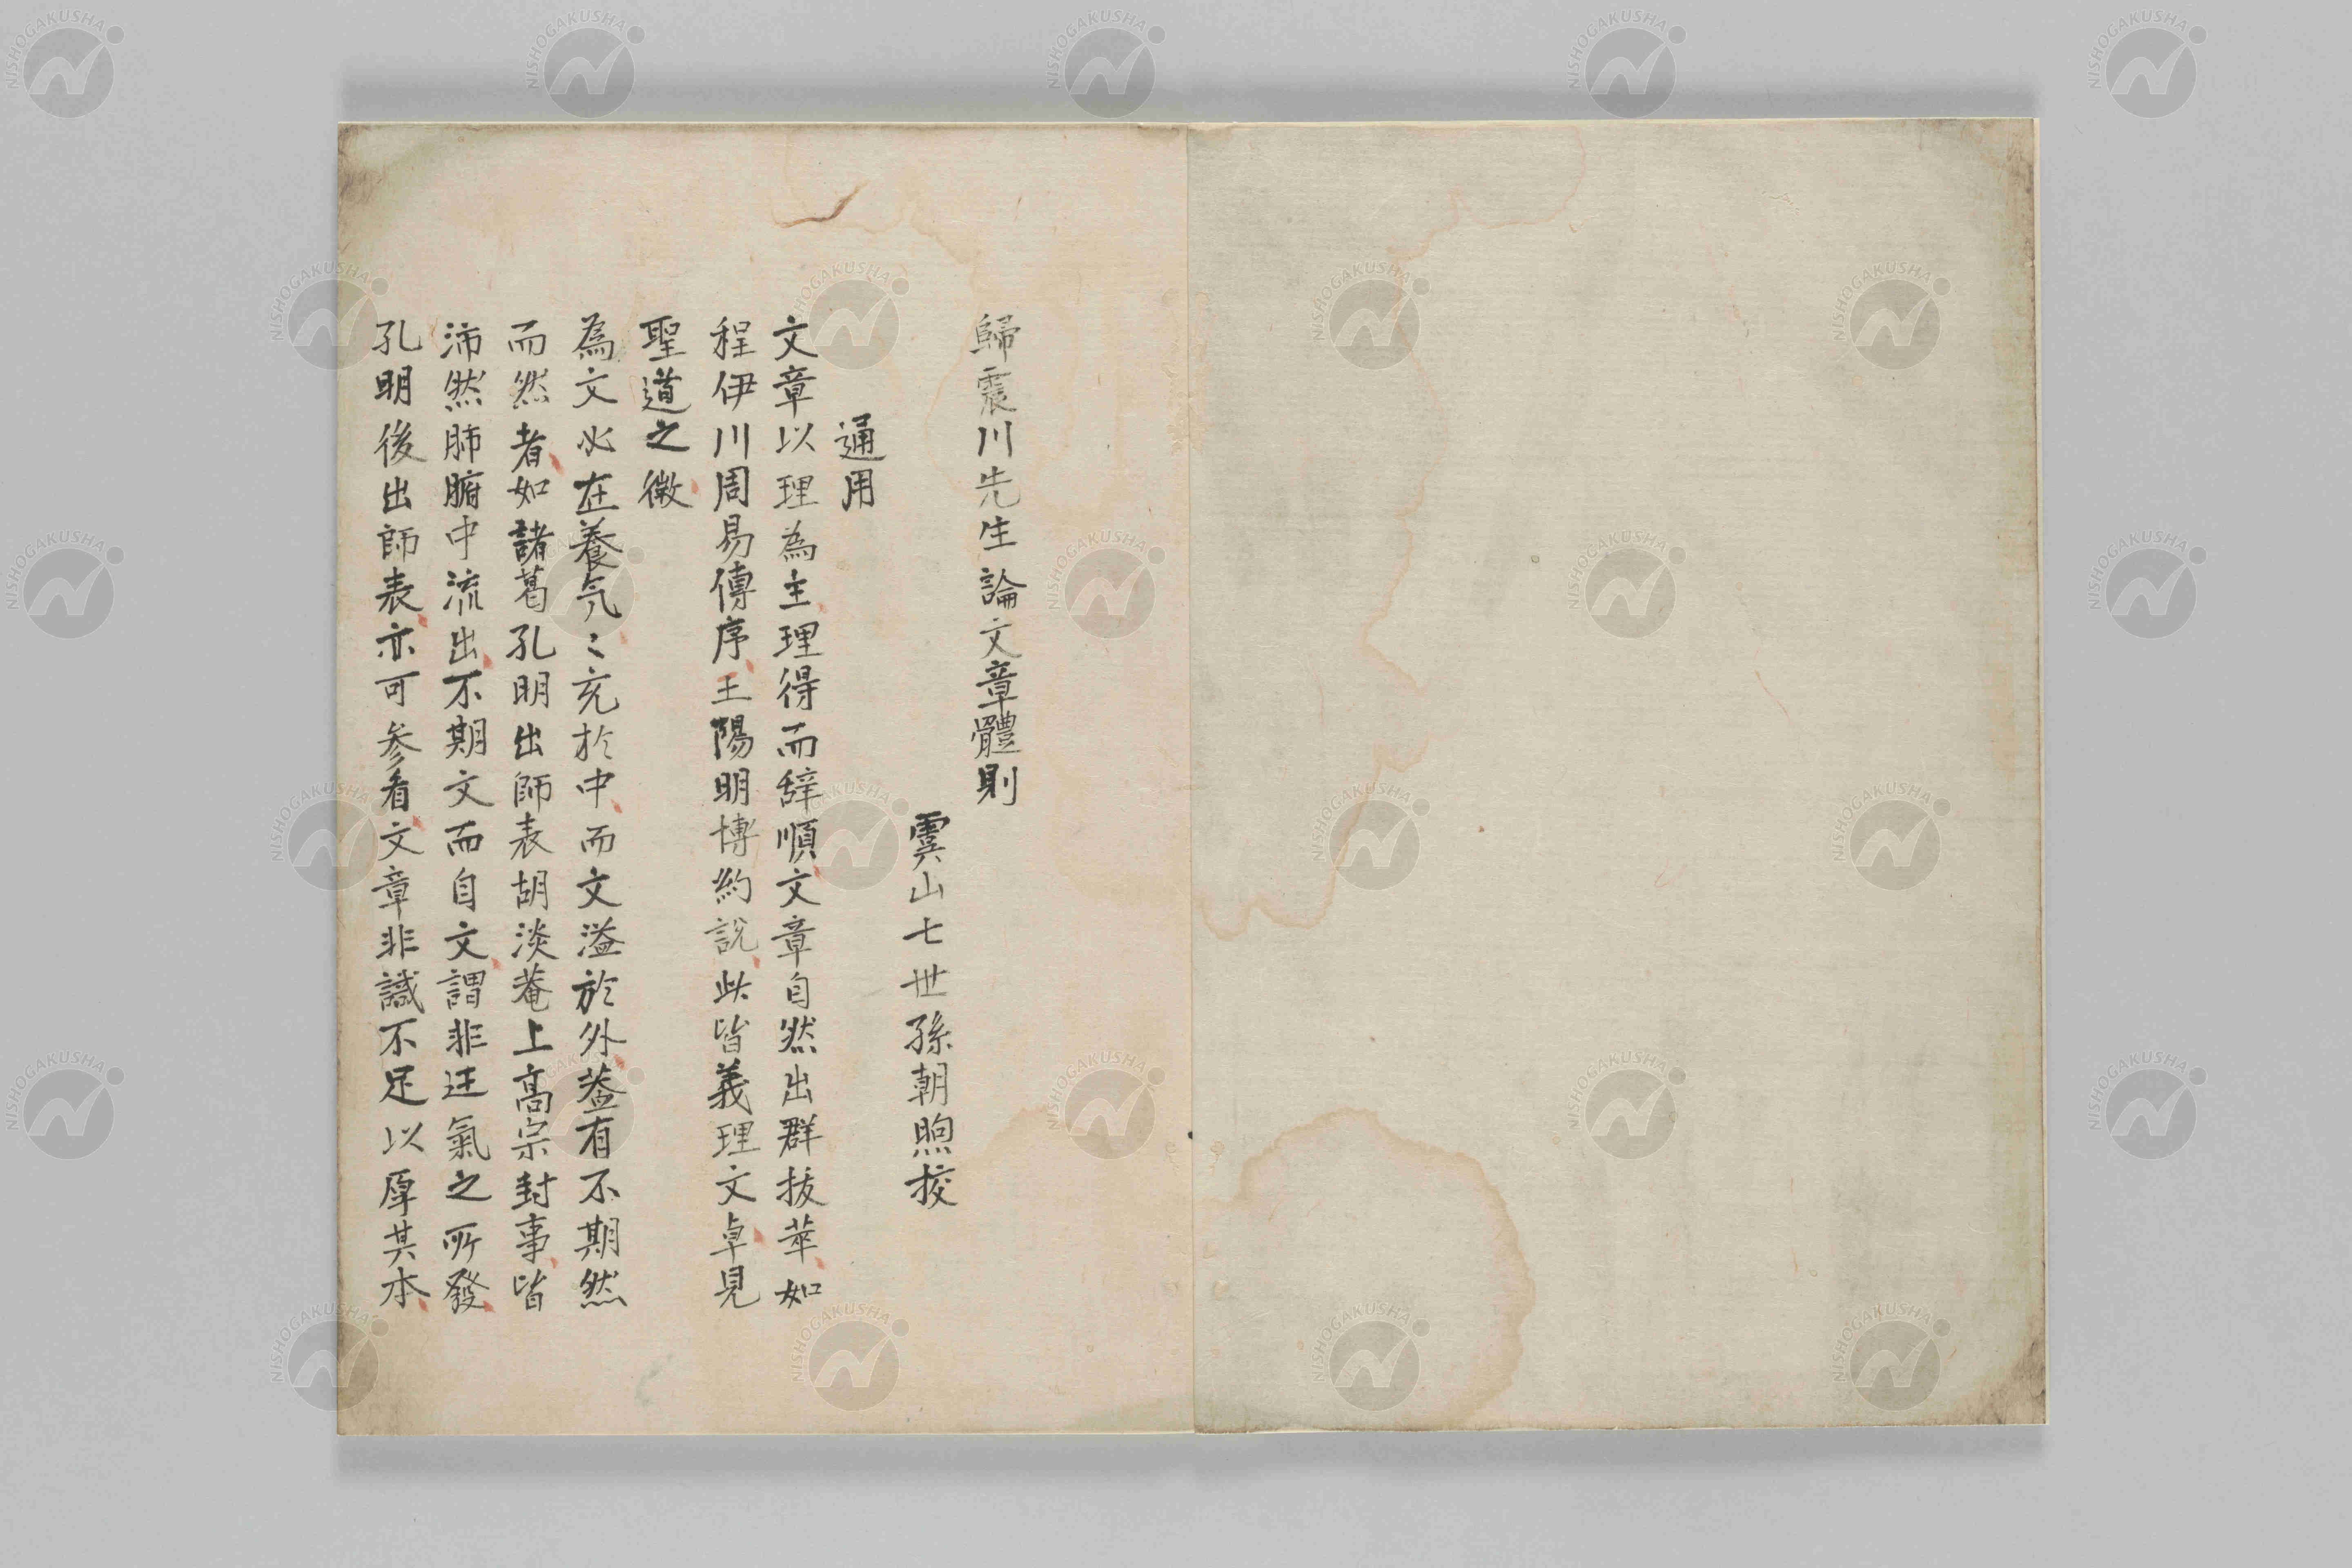 歸震川先生論文章體則
虞山七世孫朝煦挍
通用
文章以理為主理得而辞順文章自然出群拔萃如
程伊川周易傳序王陽明博約説此皆義理文卓見
聖道之微
為文必在養气〻充於中而文溢於外葢有不期然
而然者如諸葛孔明出師表胡淡菴上高宗封事皆
沛然肺腑中流出不期文而自文謂非迋氣之所發
孔明後出師表亦可参看文章非識不足以厚其本
NISHOGAKUSHA